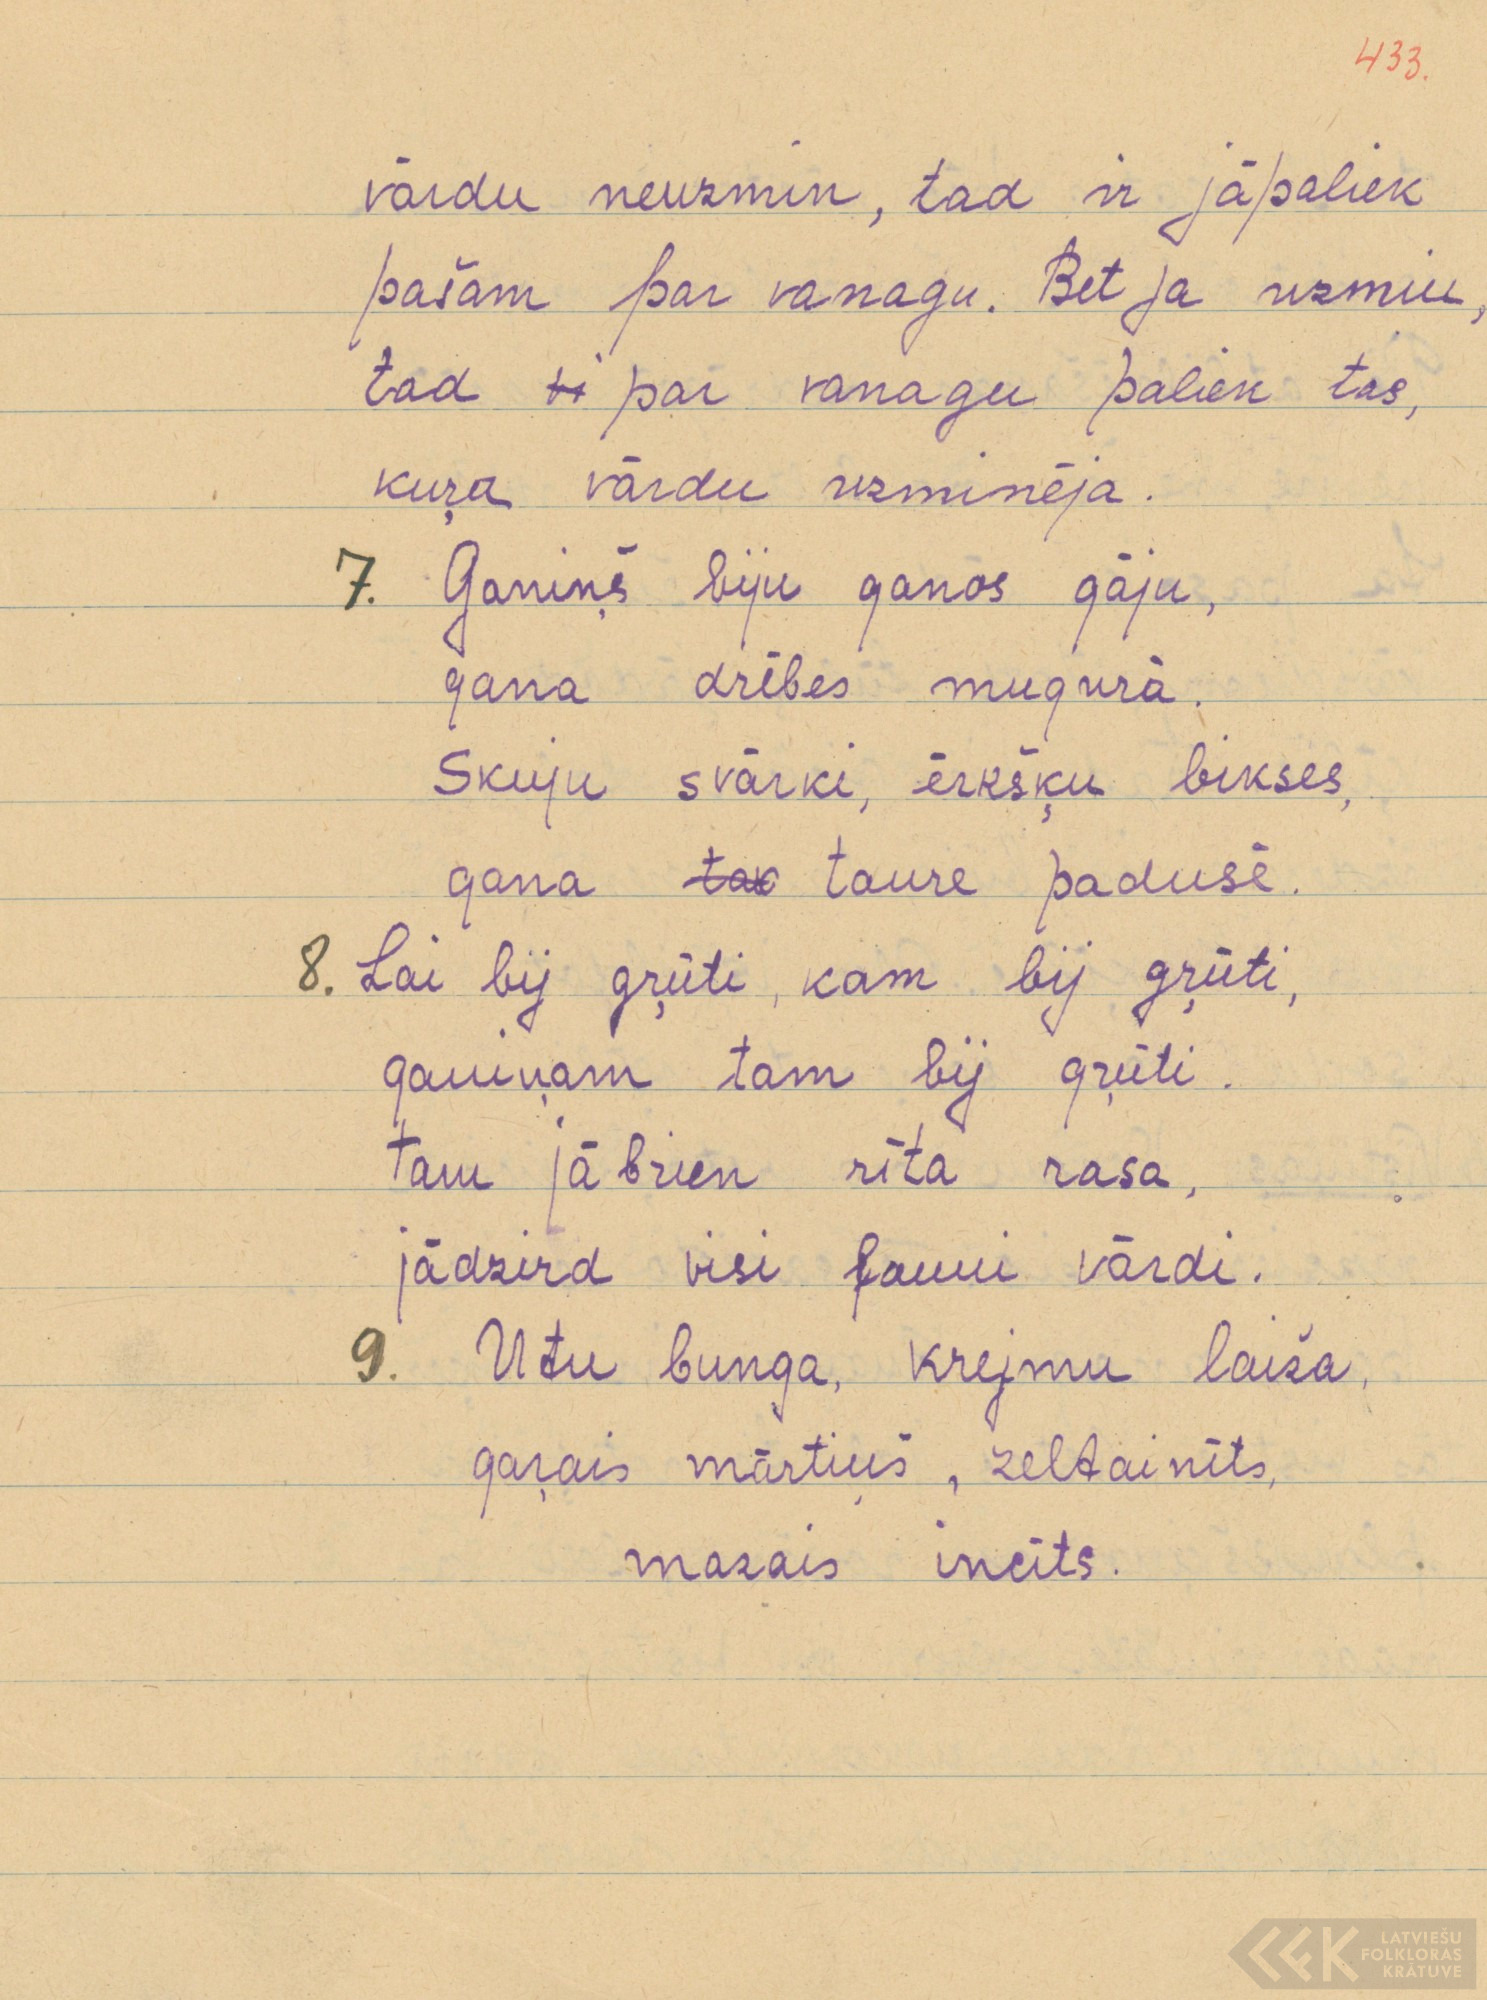 433.
vārdu neuzmin, tad ir jāpaliek
pašam par vanagu. Bet ja uzmin,
tad par vanagu paliek tas,
kuŗa vārdu uzminēja.
7. Ganiņš biju ganos gāju,
gana drēbes mugurā.
Skuju svārki, ērkšķu bikses,
gana tak taure padusē.
8. Lai bij gŗūti, kam bij gŗūti,
ganiņam tam bij gŗūti.
tam jābrien rīta rasa,
jādzird visi ļauni vārdi.
9. Utu bunga, krejmu laiža,
gaŗais mārtiņš, zeltainīts,
mazais incīts.
LATVIEŠU
FOLKLORAS
KRĀTUVE